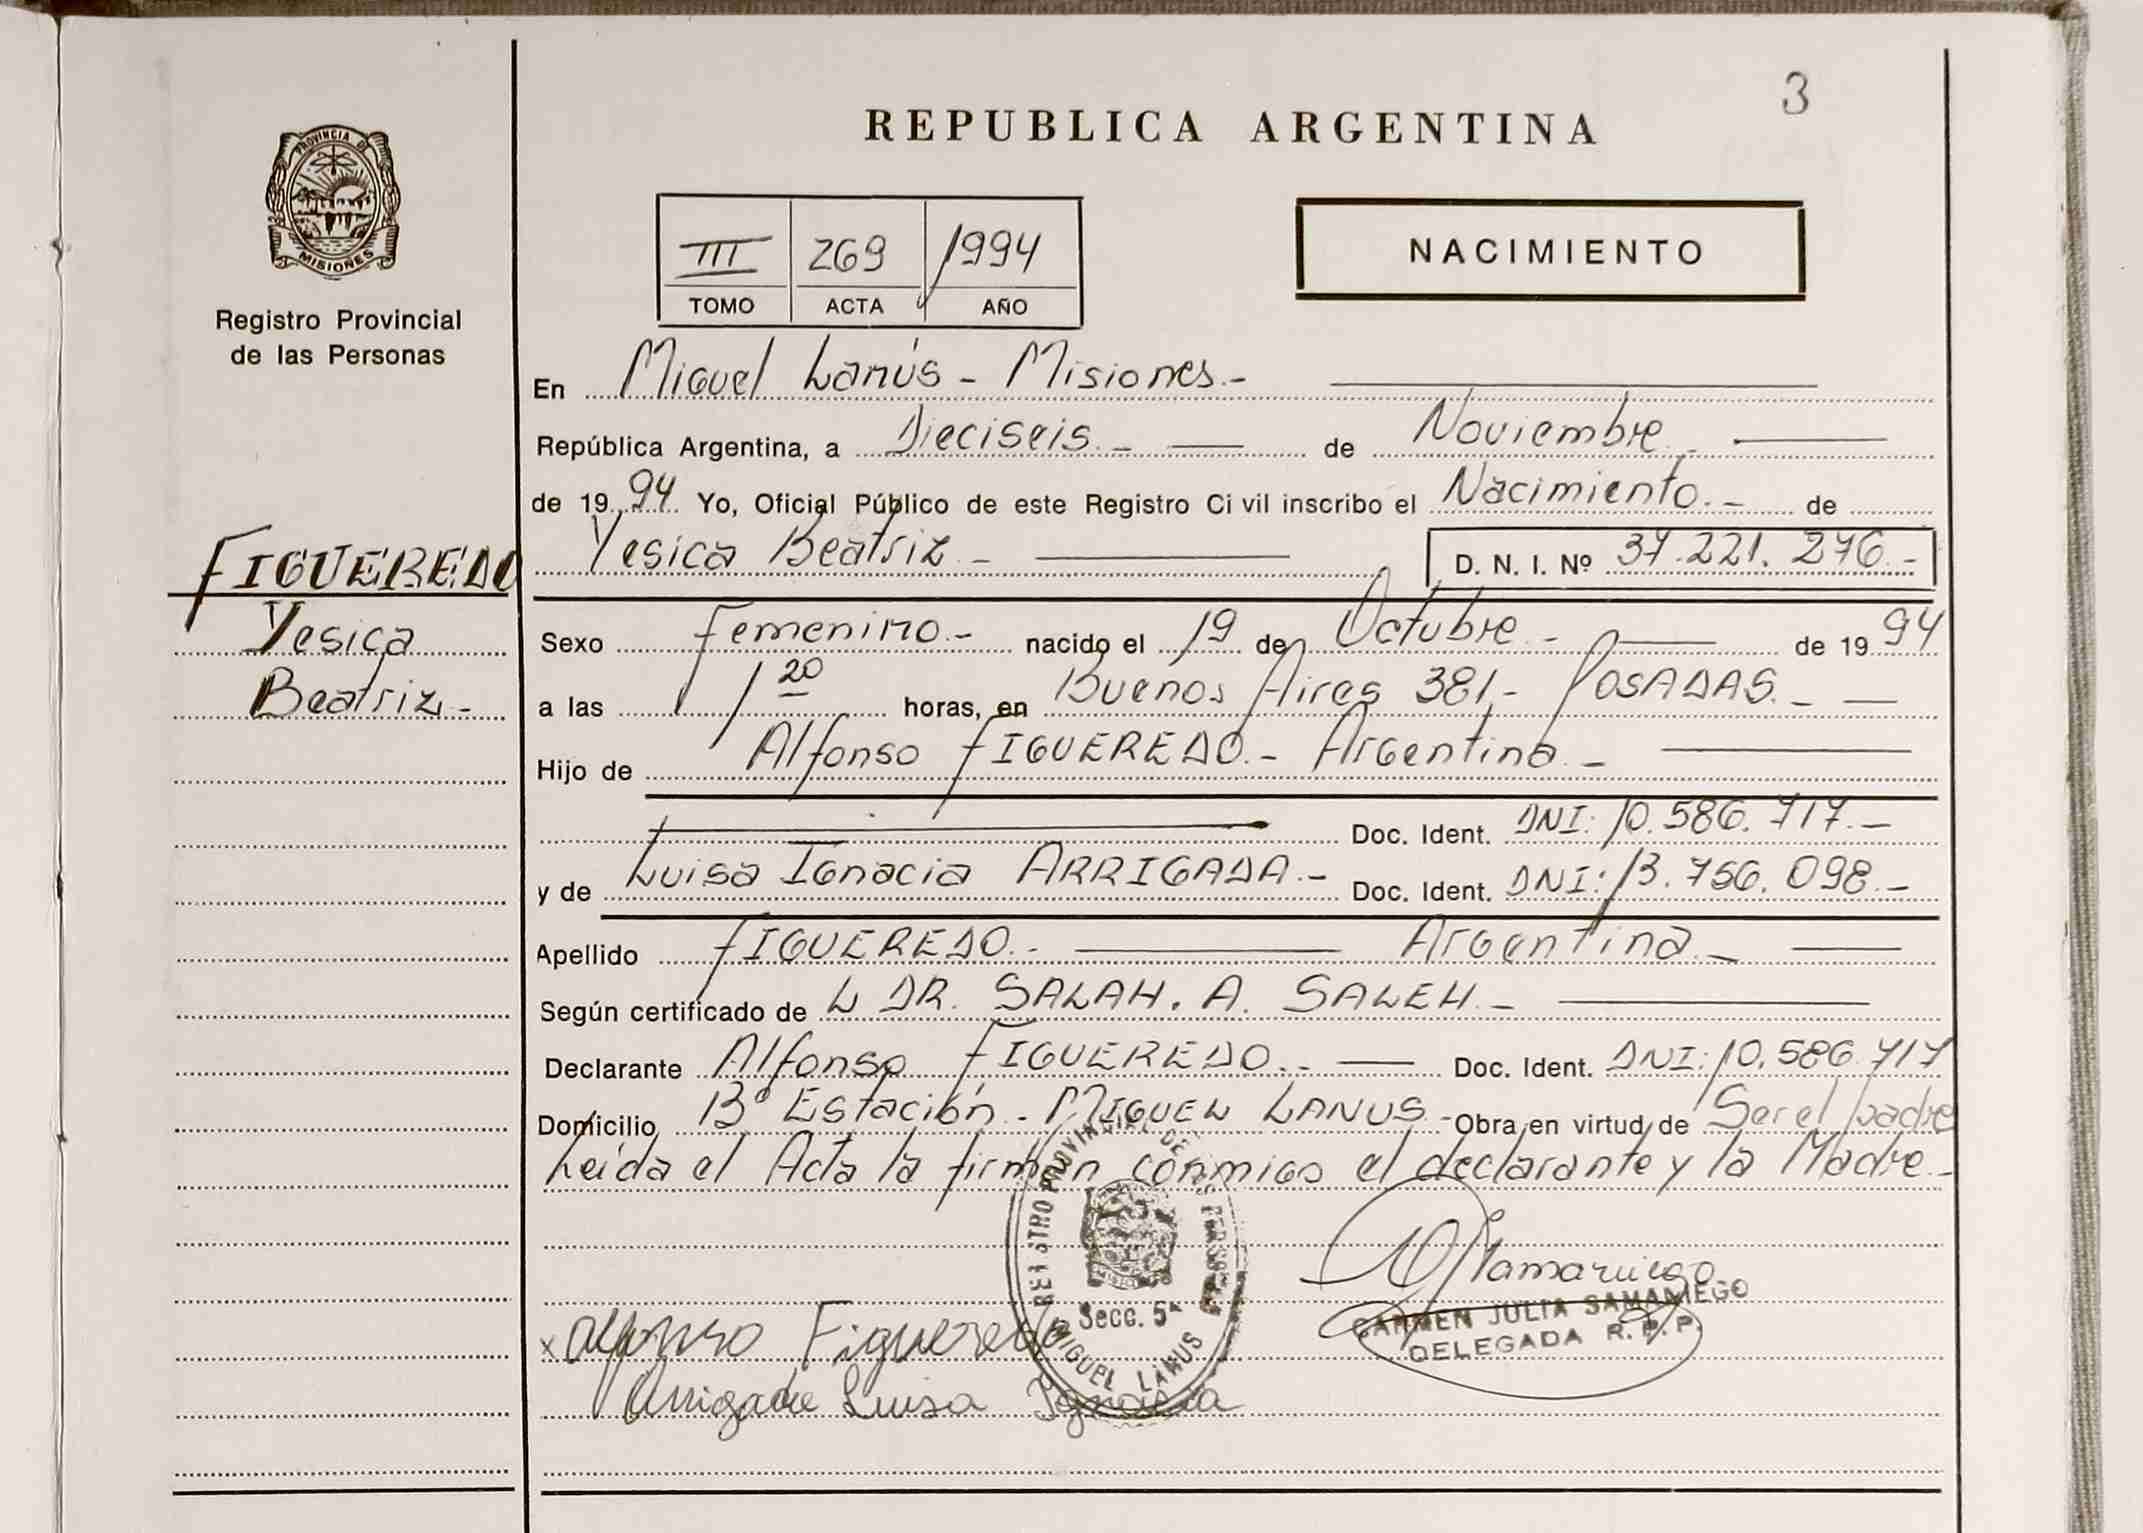 3
REPUBLICA ARGENTINA
PROVINCIA DE
MISIONES
Registro Provincial
de las Personas
III 269 1994
TOMO ACTA AÑO
NACIMIENTO
En Miguel Lanús - Misiones.-
República Argentina, a Dieciseis.- de Noviembre
de 1994 Yo, Oficial Público de este Registro Civil inscribo el Nacimiento.- de
Yesica Beatriz - D. N. I. Nº 37.221.276.-
FIGUEREDO
Yesica
Beatriz.-
Sexo Femenino.- nacido el 19 de Octubre.- de 1994
a las 1 20 horas, en Buenos Aires 381,- POSADAS.-
Hijo de Alfonso FIGUEREDO.- Argentina.-
Doc. Ident. DNI: 10.586.717.-
y de Luisa Ignacia ARRIGADA.- Doc. Ident. DNI: 13.756.098.-
Apellido FIGUEREDO.- Argentina.-
Según certificado de L DR. SALAH. A. SALEH.-
Declarante Alfonso FIGUEREDO.- Doc. Ident. DNI: 10.586.717
Domicilio Bº Estación.- MIGUEL LANUS.- Obra en virtud de Ser el padre
Leída el Acta la firman conmigo el declarante y la Madre.-
REGISTRO PROVINCIAL DE LAS PERSONAS
Secc. 5ª
MIGUEL LANUS
Samaniego
CARMEN JULIA SAMANIEGO
DELEGADA R. P. P.
x Alfonso Figueredo
Arrigada Luisa Ignacia